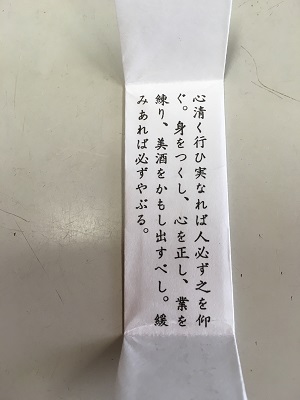 心清く行ひ実なれば人必ず之を仰
ぐ。身をつくし、心を正し、業を
練り、美酒をかもし出すべし。緩
みあれば必ずやぶる。